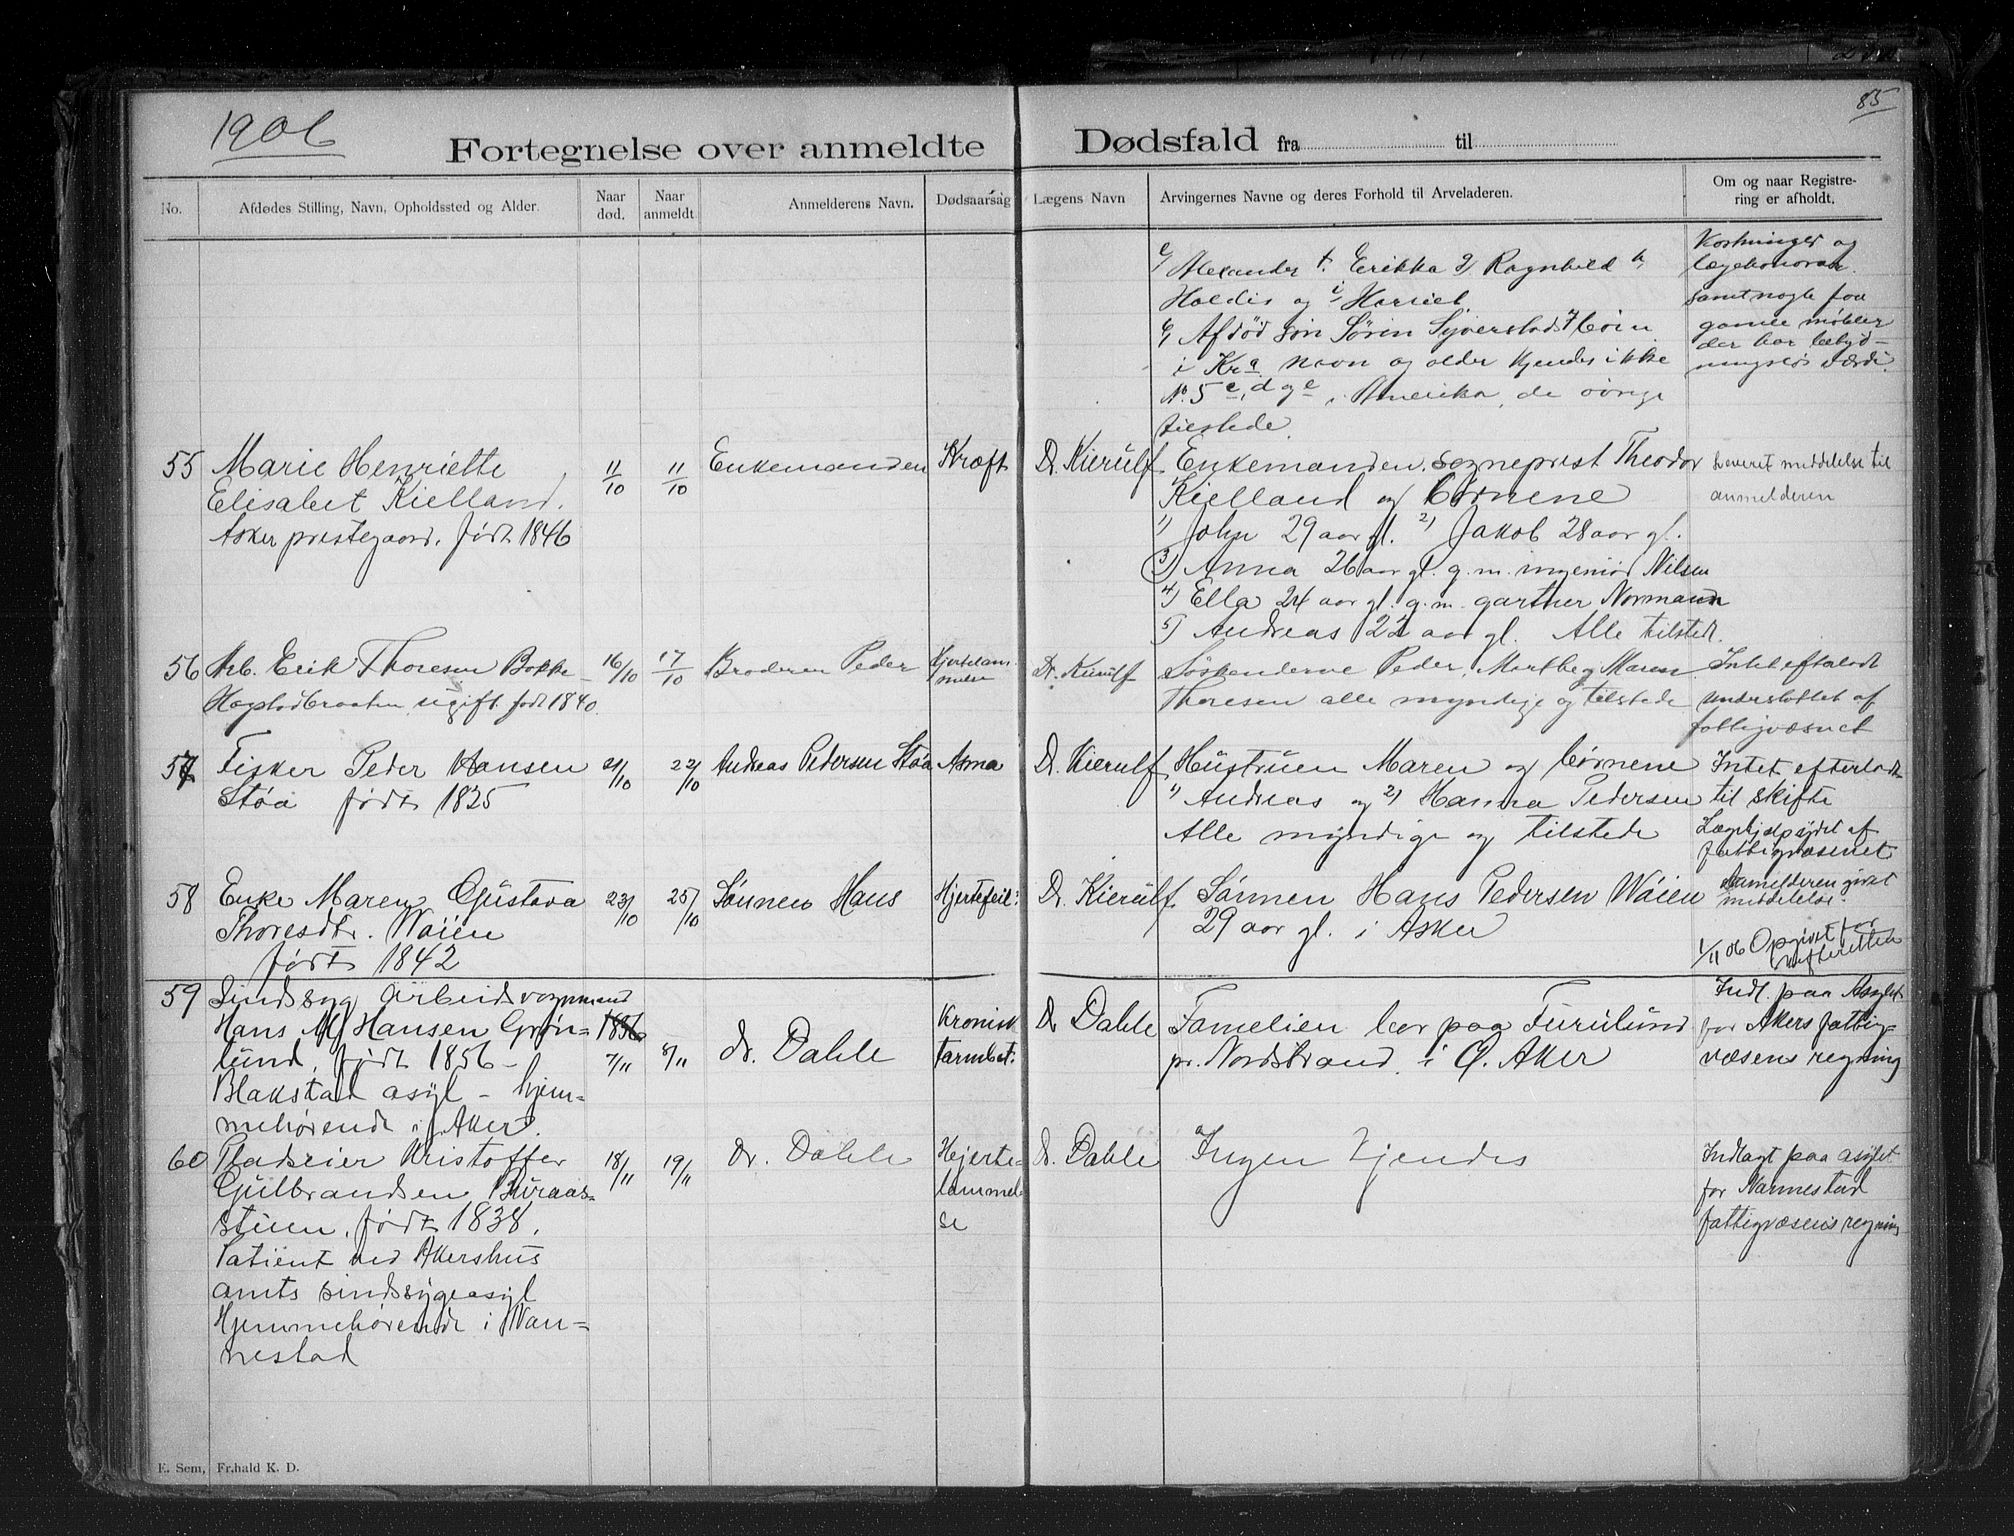 85
1906
Fortegnelse over anmeldte Dødsfald fra til
No.
Afdødes Stilling, Navn, Opholdssted og Alder.
Naar død.
Naar anmeldt
Anmelderens Navn.
Dødsaarsag
Lægens Navn
Arvingernes Navne og deres Forhold til Arveladeren.
Om og naar Registre-
ring er afholdt.
e) Alexander f. Erikka g) Ragnhild h,
Haldis og i) Harriet
6) Afdød søn Søren Syverstads børn
i Kra navn og alder kjendes ikke
No. 5 c, d og e i Amerika, de øvrige
tilstede.
og
lægehonorar
samt nogle faa
gamle møbler
der har betyd-
ningsløs værdi.
55
Marie Henriette
Elisabet Kielland.
Asker prestegaard. født 1846
11/10
11/10
Enkemanden
Kræft
Dr. Kierulf.
Enkemanden, sogneprest Theodor
Kielland og børnene
1) John 29 aar gl. 2) Jakob 28 aar gl.
3) Anna 26 aar gl. g. m. ingeniør Nilsen
4) Ella 24 aar gl. g. m. gartner Normann
5) Andreas 22 aar gl. Alle tilstede.
leveret meddelelse til
anmelderen
56
Arb. Erik Thoresen Bokke-
Hagstadbraaten ugift født 1840.
16/10
17/10
Broderen Peder
Hjertelam-
melse
Dr. Kierulf
Søskenderne Peder, Marthe og Maren
Thoresen alle myndige og tilstede
Intet efterladt
understøttet af
fattigvæsnet
57
Fisker Peder Hansen
Støa født 1825
21/10
22/10
Andreas Pedersen Støa
Asma
Dr. Kierulf
Hustruen Maren og børnene
1) Andreas og 2) Hanna Pedersen
Alle myndige og tilstede
Intet efterladt
til skifte
Lægehjælp ydet af
fattigvæsenet
58
Enke Maren Gustava
Thoresdtr. Wøien
født 1842
23/10
25/10
Sønnen Hans
Hjertefeil
Dr. Kierulf.
Sønnen Hans Pedersen Wøien
29 aar gl. i Asker
Anmelderen givet
meddelelse.
1/11 06 Opgivet for
skifteretten
59
Sindssyg arbeidsvognmand
Hans M Hansen Grøn-
lund, født 1856 -
Blakstad asyl - hjem-
mehørende i Aker.
1856
7/11
8/11
dr. Dahle
Kronisk
tarmbet:
Dr Dahle
Familien bor paa Furulund
pr. Nordstrand, i Ø. Aker
Indl. paa Asylet
for Akers fattig-
væsens regning
60
Pladseier Kristoffer
Gulbrandsen Buraas-
stuen, født 1838,
Patient ved Akershus
amts sindssygeasyl
Hjemmehørende i Nan-
nestad
18/11
19/11
Dr. Dahle
Hjerte-
lammel-
se
Dr. Dahle
Ingen kjendes
Indlagt paa asylet
for Nannestad
fattigvæsens regning
E. Sem, Fr.hald K. D.